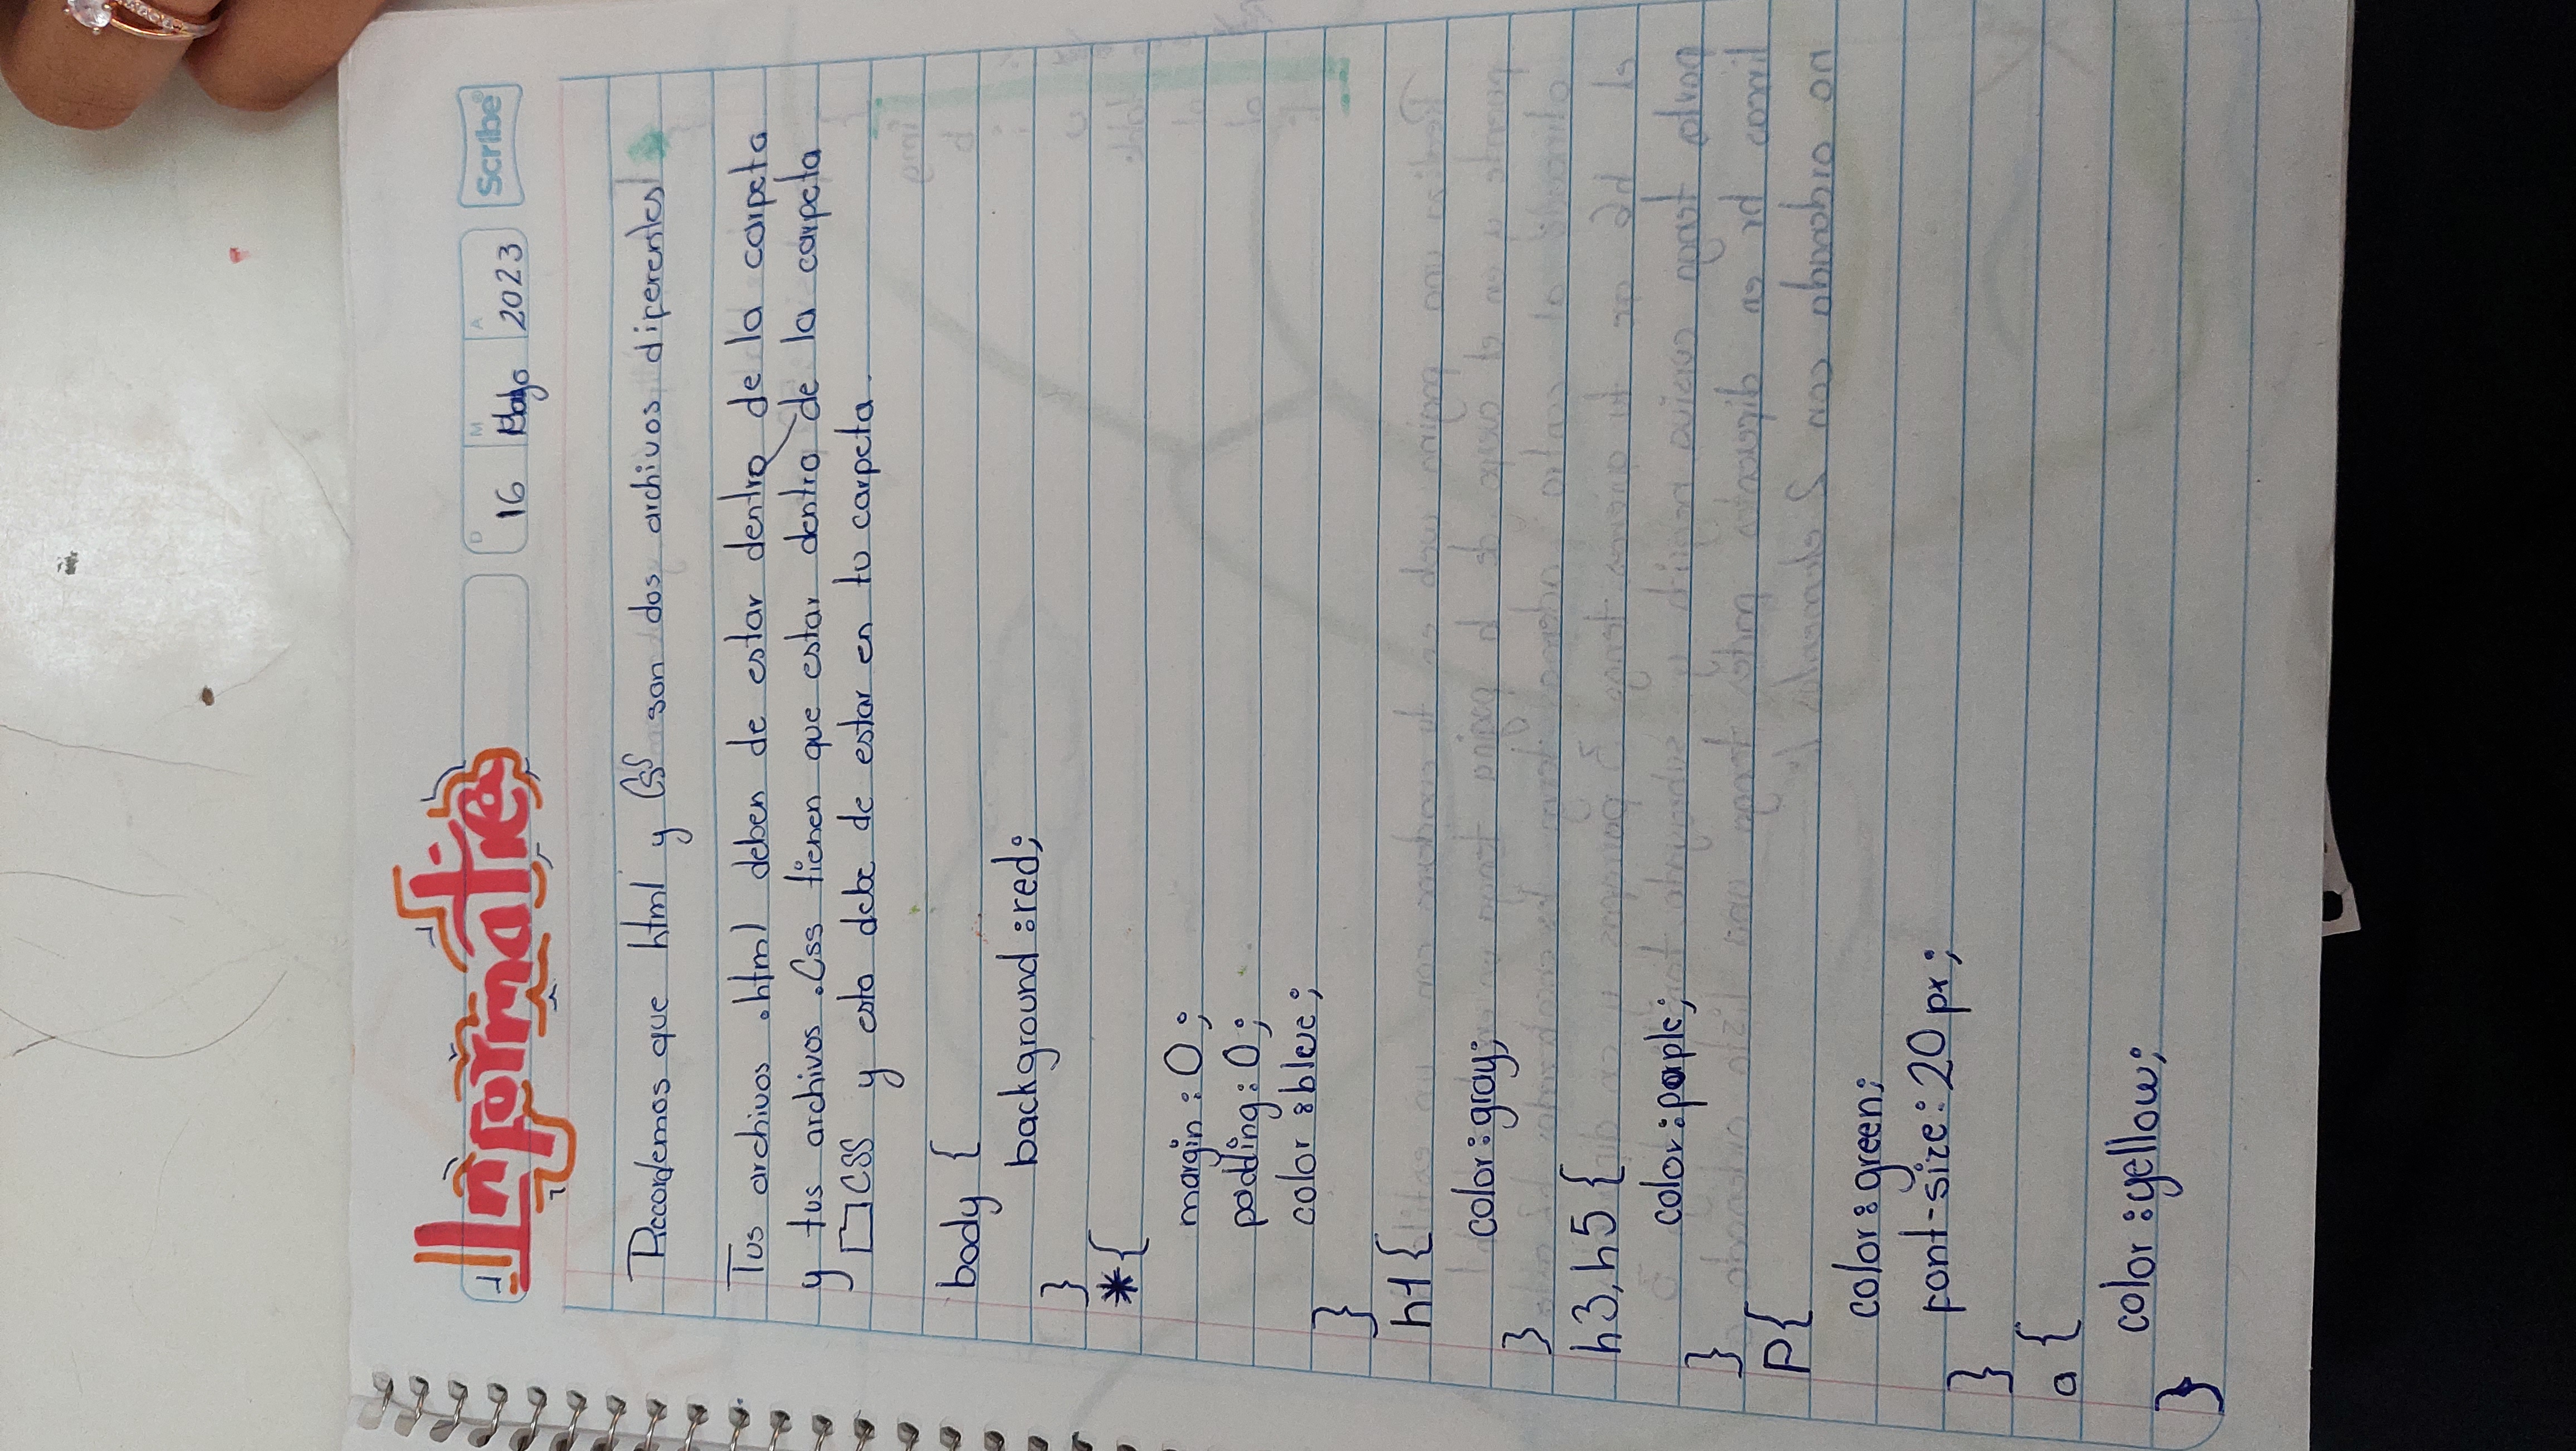 Informática
D 16 M Mayo A 2023 Scribe®
Recordemos que html y Css son dos archivos diferentes
Tus archivos .html deben de estar dentro de la carpeta
y tus archivos .Css tienen que estar dentro de la carpeta
CSS y esta debe de estar en tu carpeta.
body {
background:red;
}
*{
margin:0;
padding:0;
color:bleue;
}
h1{
color:gray;
}
h3,h5{
color:porple;
}
P{
color:green;
font-size:20px;
}
a {
color:yellow;
}